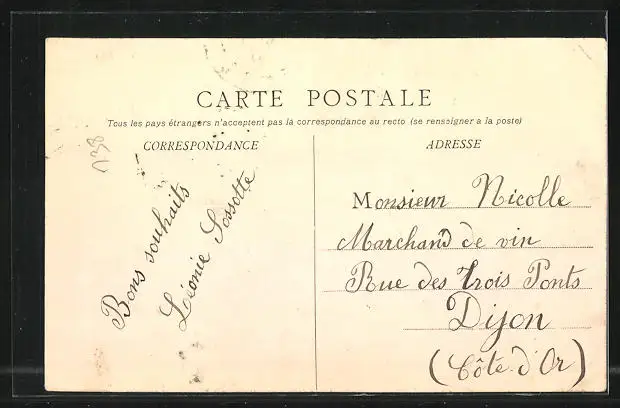 CARTE POSTALE
Tous les pays étrangers n'acceptent pas la correspondance au recto (se renseigner a la poste)
CORRESPONDANCE
Bons souhaits
Léonie Sossotte
ADRESSE
Monsieur Nicolle
Marchand de vin
Rue des Trois Ponts
Dijon
(Côte d'Or)